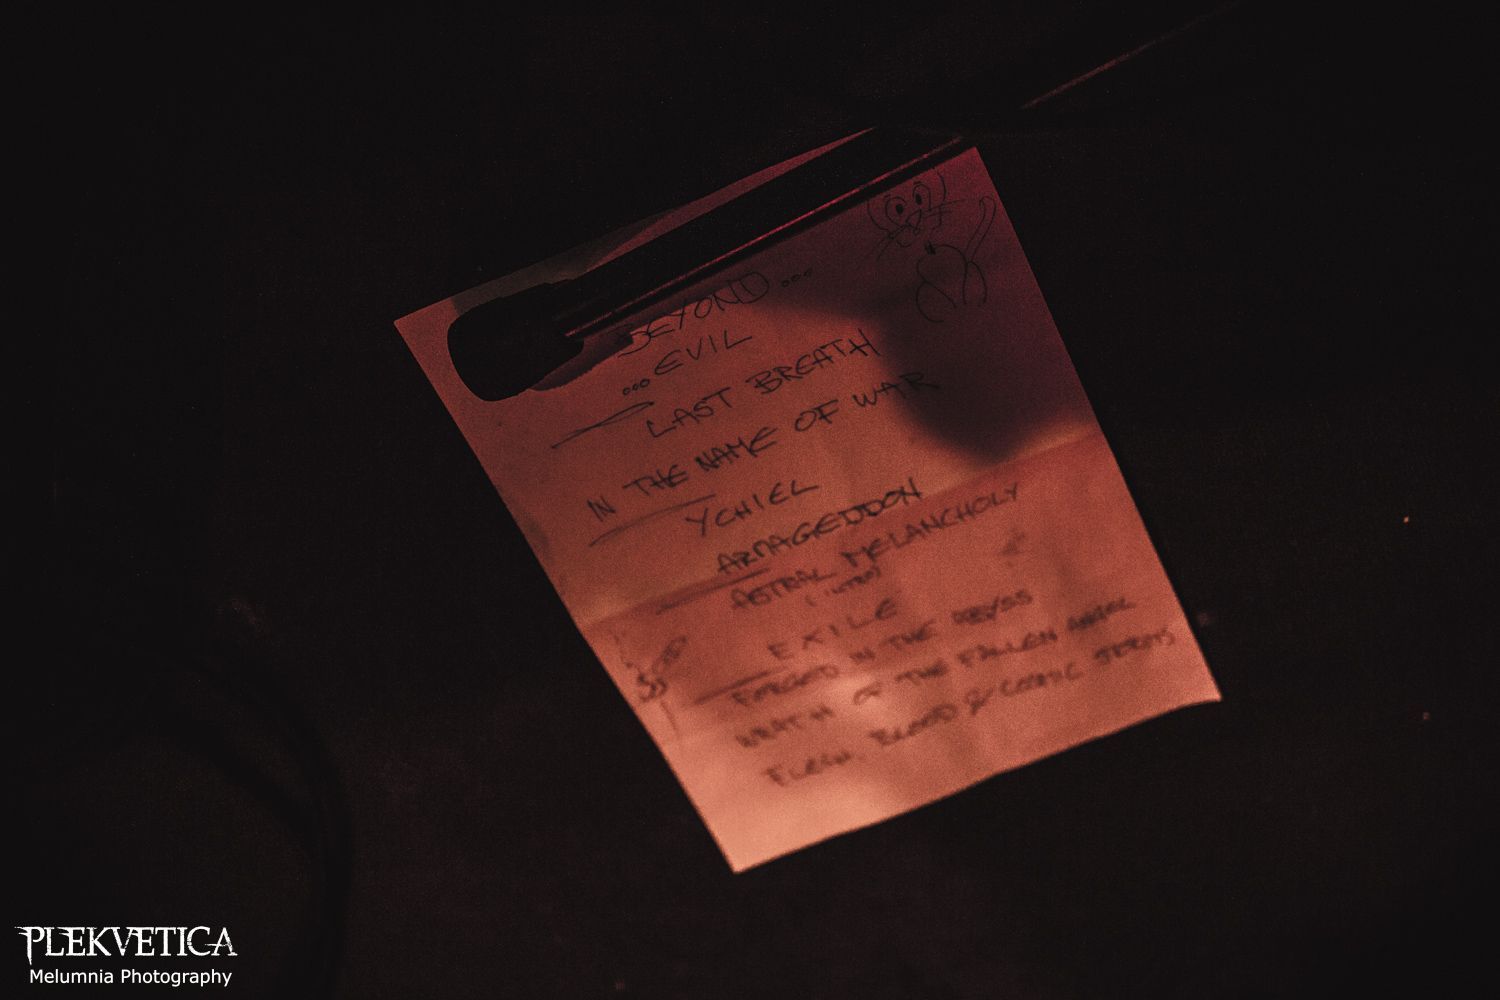 BEYOND ...
... EVIL
LAST BREATH
IN THE NAME OF WAR
YCHIEL
ARMAGEDDON
ASTRAL MELANCHOLY
(INTRO)
EXILE
FORGED IN THE ABYSS
WRATH OF THE FALLEN ANGEL
FLESH, BLOOD & COSMIC STORMS
PLEKVETICA
Melumnia Photography